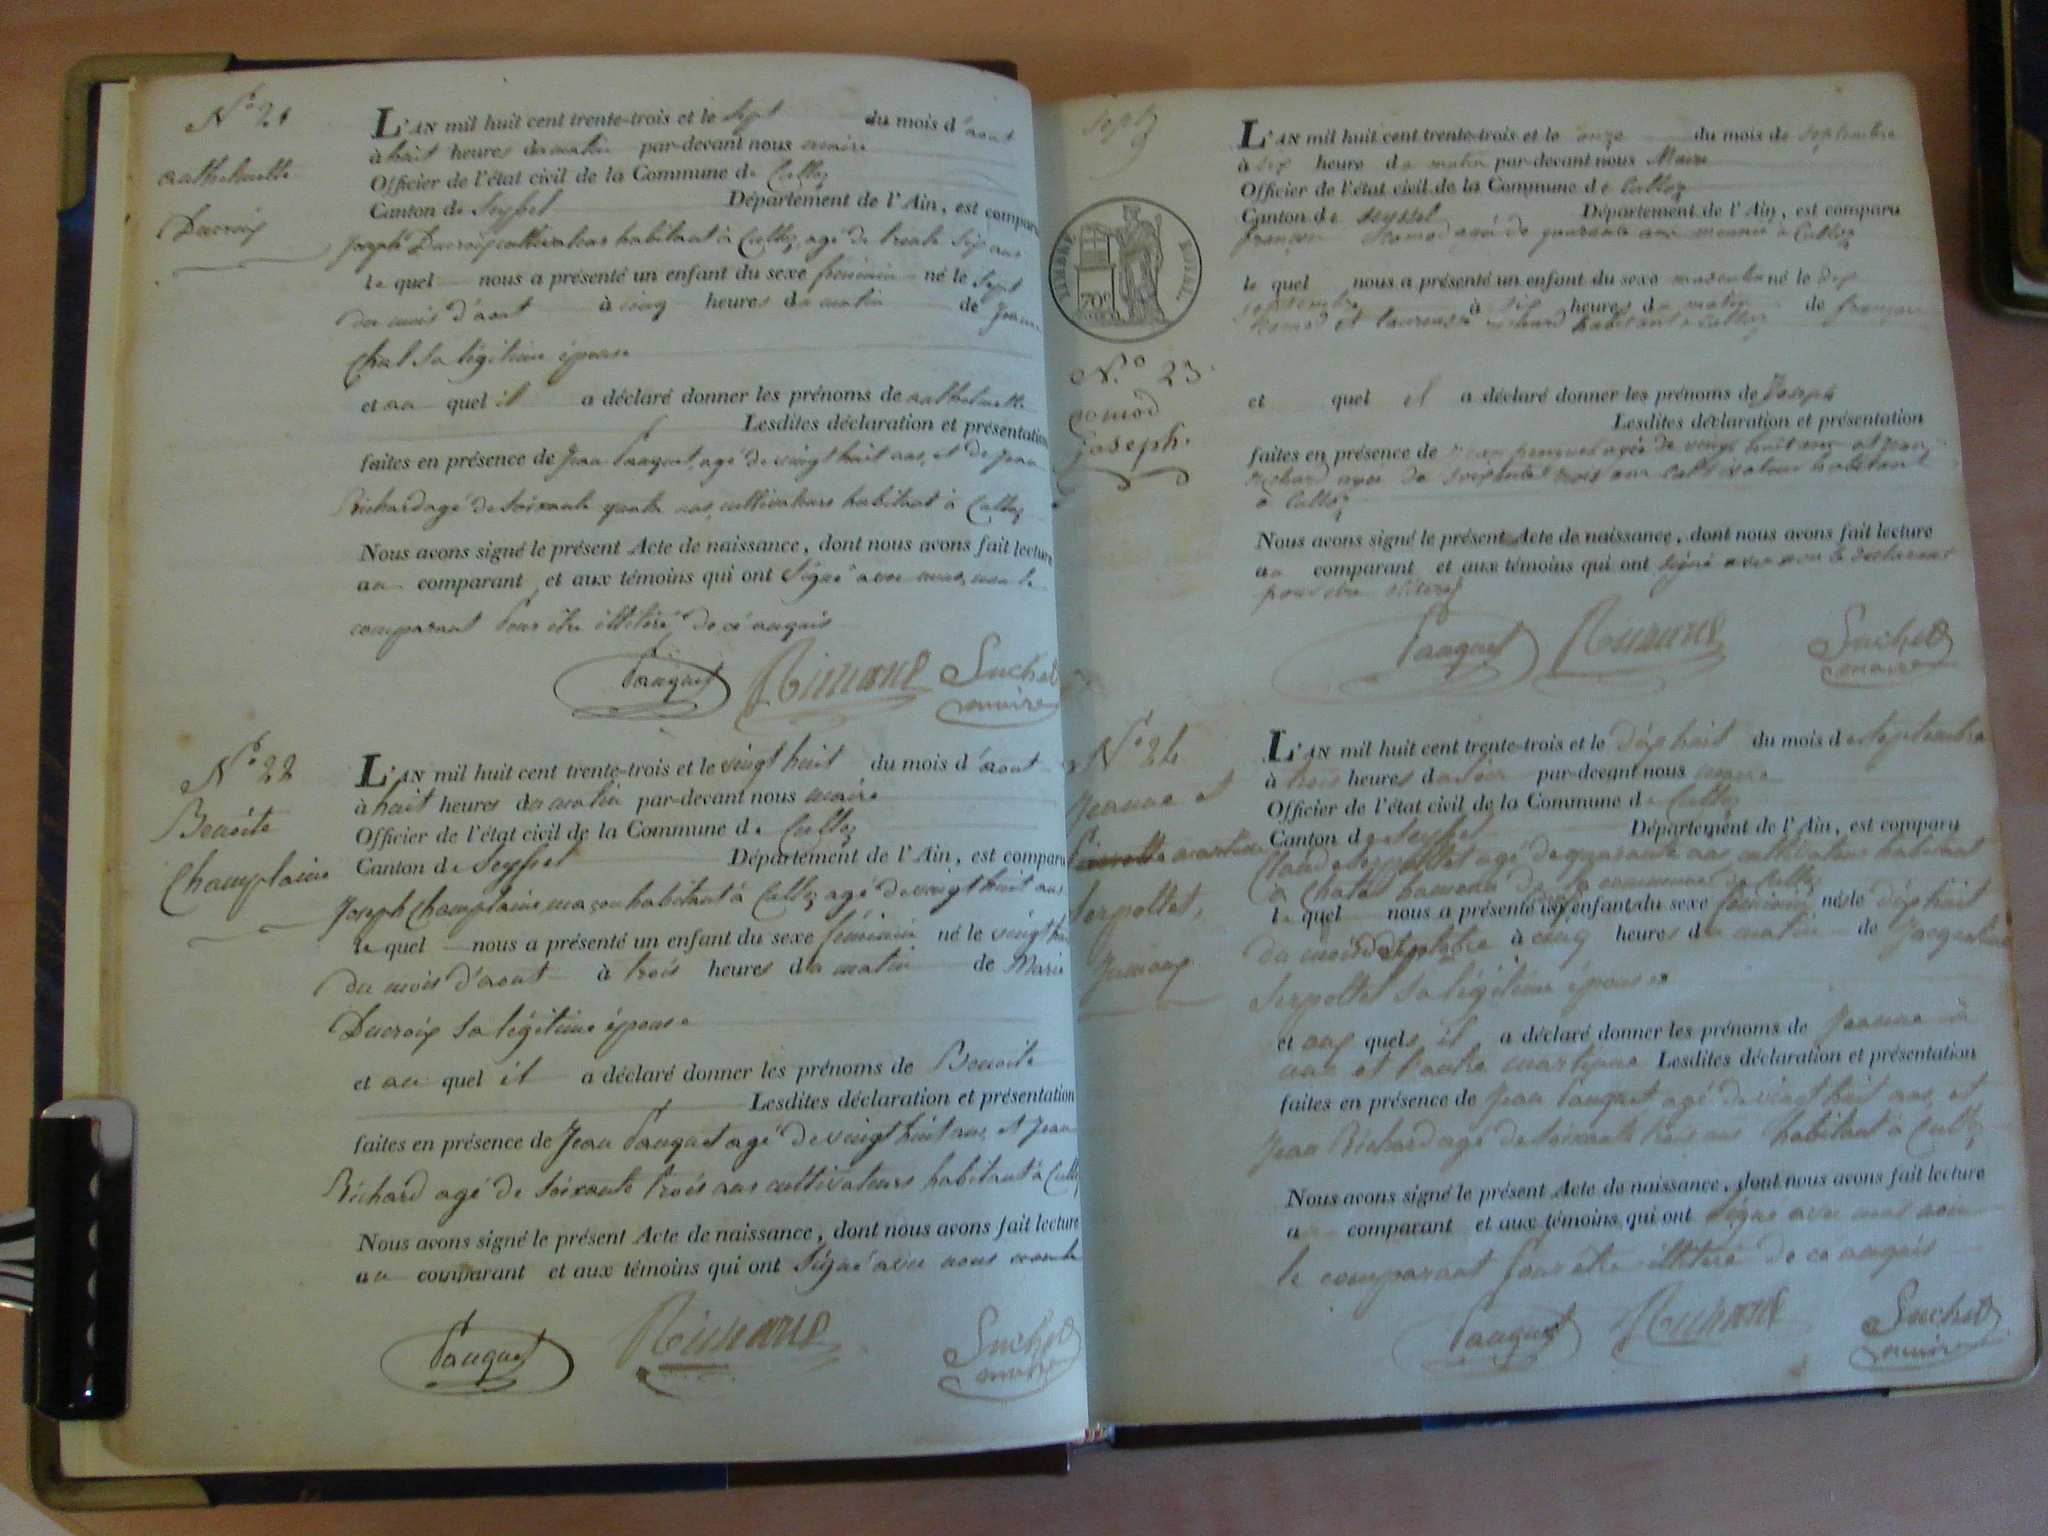 N.º 21
Ducroix
L'AN mil huit cent trente-trois et le sept du mois d'aout
à huit heures du matin par-devant nous maire
Officier de l'état civil de la Commune de Culloz
Canton de Seyssel Département de l'Ain, est comparu
Joseph Ducroix cultivateur habitant à Culloz, agé de trente six ans
le quel nous a présenté un enfant du sexe féminin né le sept
du mois d'aout à cinq heures du matin de Jeanne
Chal sa légitime épouse
et au quel il a déclaré donner les prénoms de
Lesdites déclaration et présentation
faites en présence de Jean Pauquet, agé de vingt huit ans, et de Jean
Richard agé de soixante quatre ans, cultivateurs habitant à Culloz
Nous avons signé le présent Acte de naissance, dont nous avons fait lecture
au comparant et aux témoins qui ont signé avec nous, non le
comparant pour être illitéré de ce anquis
Pauquet Suchet
maire
N.º 22
Benoite
Champlaine
L'AN mil huit cent trente-trois et le vingt huit du mois d'aout
à huit heures du matin par-devant nous maire
Officier de l'état civil de la Commune de Culloz
Canton de Seyssel Département de l'Ain, est comparu
Joseph Champlaine maçon habitant à Culloz agé de vingt huit ans
le quel nous a présenté un enfant du sexe féminin né le vingt huit
du mois d'aout à trois heures du matin de Marie
Ducroix sa légitime épouse
et au quel il a déclaré donner les prénoms de Benoite
Lesdites déclaration et présentation
faites en présence de Jean Pauquet agé de vingt huit ans, et Jean
Richard agé de soixante trois ans cultivateurs habitant à Culloz
Nous avons signé le présent Acte de naissance, dont nous avons fait lecture
au comparant et aux témoins qui ont signé avec nous
Pauquet Suchet
maire
TIMBRE ROYAL
70c
N.º 23.
joseph.
L'AN mil huit cent trente-trois et le onze du mois de septembre
à six heure de matin par-devant nous Maire
Officier de l'état civil de la Commune de Culloz
Canton de seyssel Département de l'Ain, est comparu
françois agé de quarante ans à Culloz
le quel nous a présenté un enfant du sexe masculin né le dix
septembre à six heures de matin de françois
et habitant à Culloz
et quel il a déclaré donner les prénoms de Joseph
Lesdites déclaration et présentation
faites en présence de jean pauquet agée de vingt huit ans et jean
richard agée de soixante trois ans cultivateur habitant
à Culloz
Nous avons signé le présent Acte de naissance, dont nous avons fait lecture
au comparant et aux témoins qui ont signé avec non le declarant
pour etre
Pauquet Suchet
maire
N.º 24
Jeanne et
martine
Serpollet,
Jumaux
L'AN mil huit cent trente-trois et le dixhuit du mois de septembre
à trois heures du soir par-devant nous maire
Officier de l'état civil de la Commune de Culloz
Canton de Seyssel Département de l'Ain, est comparu
Claude Serpollet agé de quarante ans, cultivateur habitant
à Chatel hameau de la commune de Culloz
le quel nous a présenté enfant du sexe féminin né le dixhuit
du mois de septembre à cinq heures du matin de Jacqueline
Serpollet sa légitime épouse
et aux quels il a déclaré donner les prénoms de Jeanne à
une et l'autre martine Lesdites déclaration et présentation
faites en présence de Jean Pauquet agé de vingt huit ans, et
Jean Richard agé de soixante trois ans habitant à Culloz
Nous avons signé le présent Acte de naissance, dont nous avons fait lecture
au comparant et aux témoins qui ont signé avec nous non
le comparant pour etre illitéré de ce anquis
Pauquet Suchet
maire